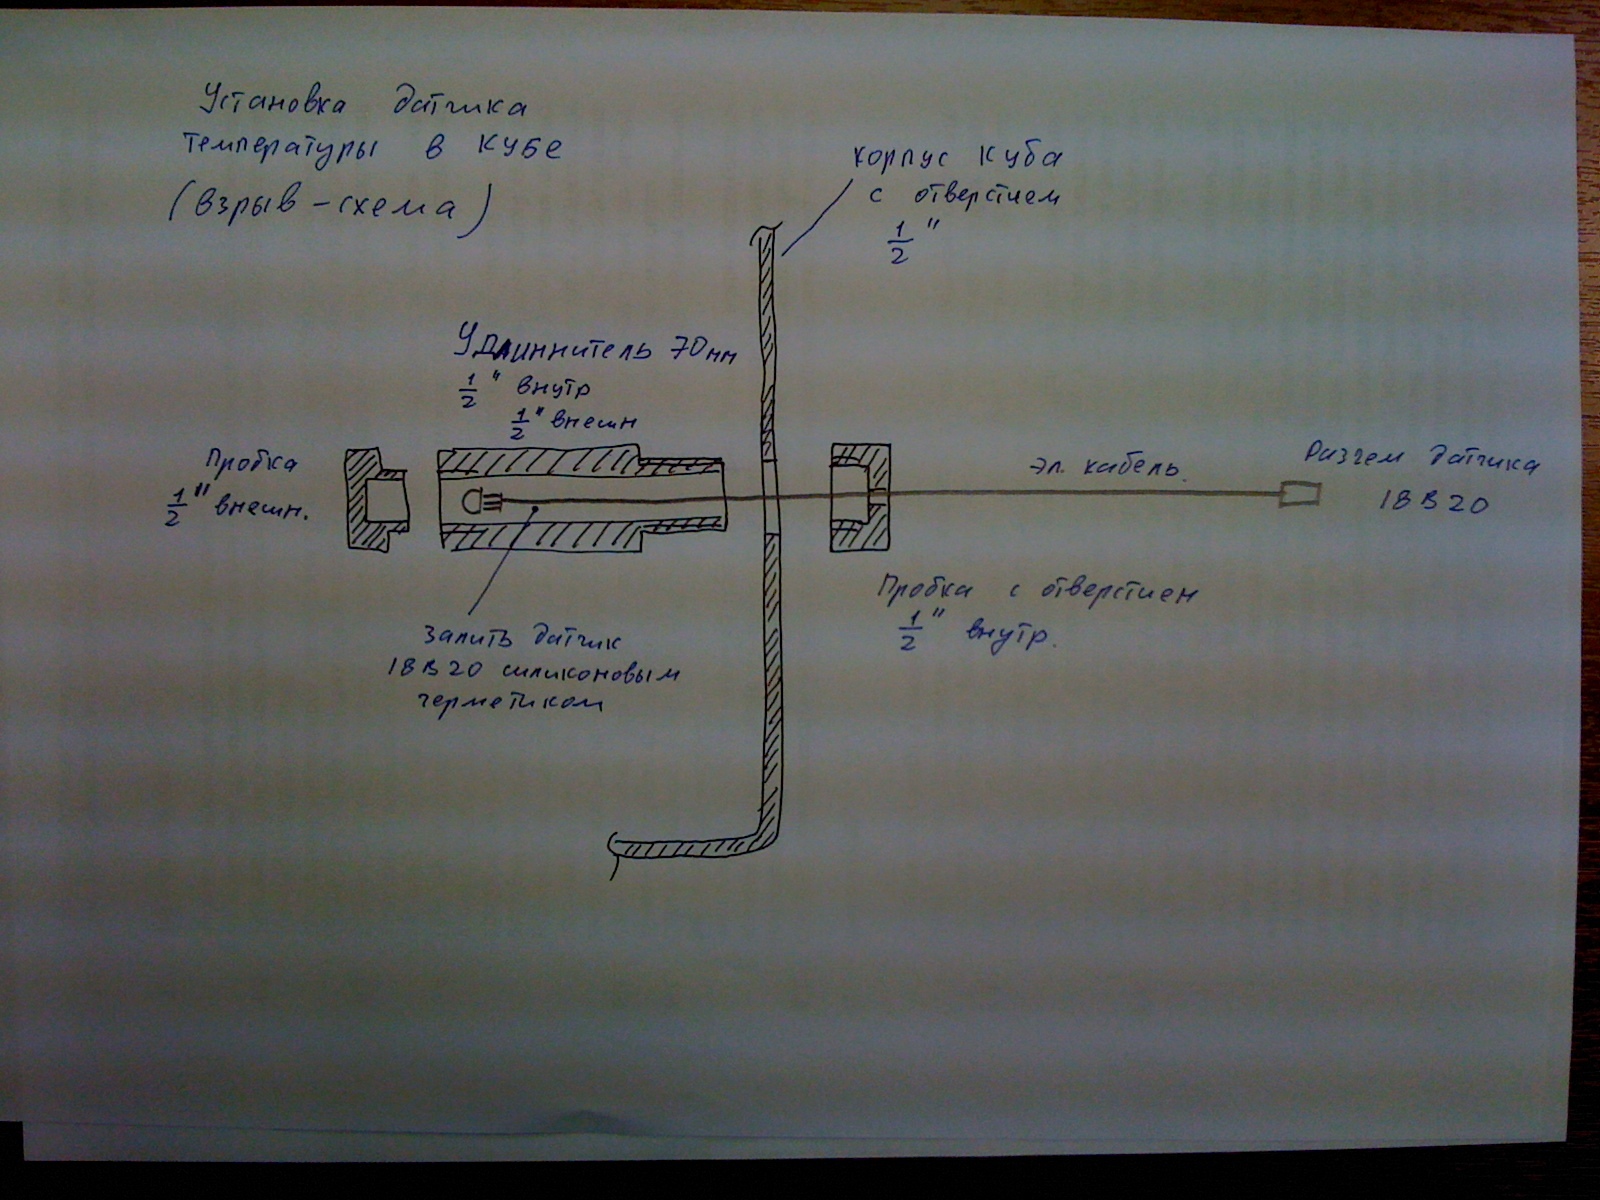 Установка датчика
температуры в кубе
(взрыв-схема)
корпус куба
с отверстием
1/2"
Удлиннитель 70мм
1/2" внутр
1/2" внешн
Пробка
1/2" внешн.
эл. кабель.
Разъем датчика
18B20
Пробка с отверстием
1/2" внутр.
Залить датчик
18B20 силиконовым
герметиком